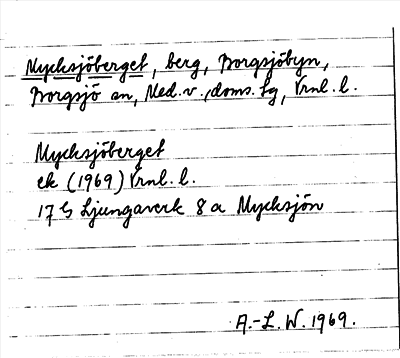 Mycksjöberget, berg, Borgsjöbyn,
Borgsjö sn, Med. v., doms. tg, Vrnl. l.
Mycksjöberget
ek (1969) Vrnl. l.
17 G Ljungaverk 8 a Mycksjön
A.-L. W. 1969.